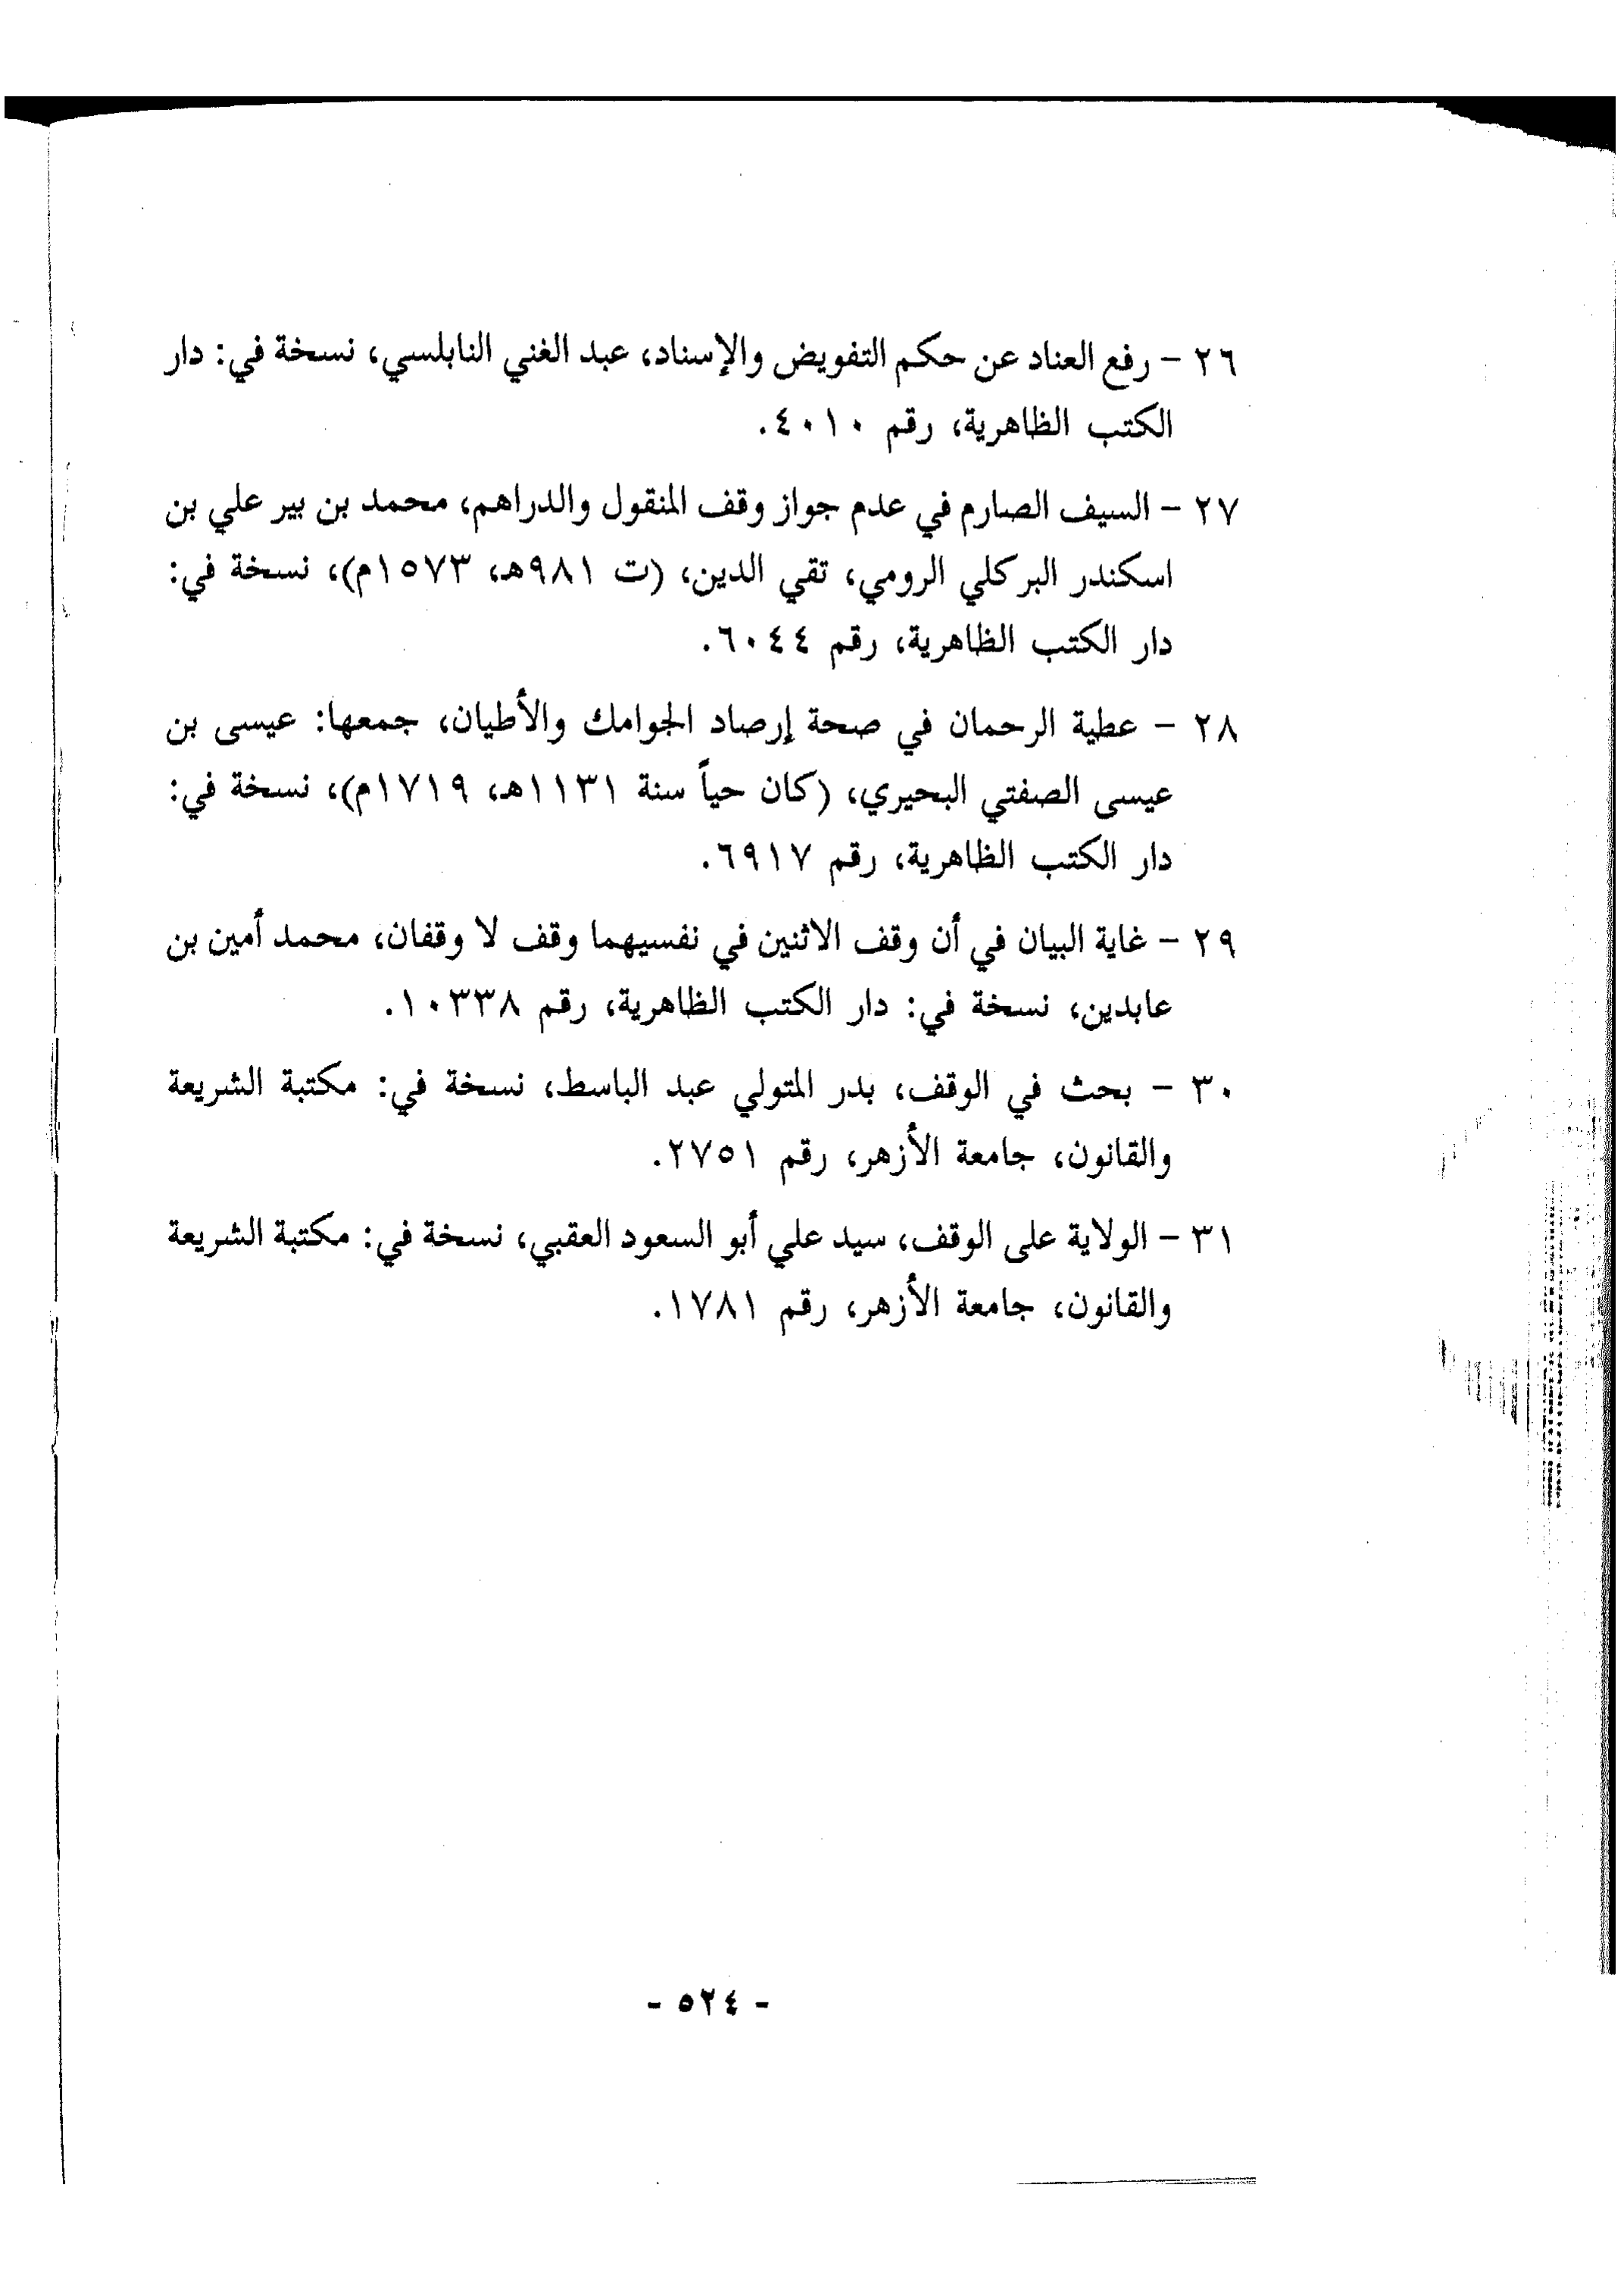 ٢٦ - رفع العناد عن حكم التفويض والإسناد، عبد الغني النابلسي، نسخة في: دار
الكتب الظاهرية، رقم ٤٠١٠.
٢٧ - السيف الصارم في عدم جواز وقف المنقول والدراهم، محمد بن بير علي بن
اسكندر البركلي الرومي، تقي الدين، (ت ٩٨١هـ، ١٥٧٣م)، نسخة في:
دار الكتب الظاهرية، رقم ٦٠٤٤.
٢٨ - عطية الرحمان في صحة إرصاد الجوامك والأطيان، جمعها: عيسى بن
عيسى الصفتي البحيري، (كان حياً سنة ١١٣١هـ، ١٧١٩م)، نسخة في:
دار الكتب الظاهرية، رقم ٦٩١٧.
٢٩ - غاية البيان في أن وقف الاثنين في نفسيهما وقف لا وقفان، محمد أمين بن
عابدين، نسخة في: دار الكتب الظاهرية، رقم ١٠٣٣٨.
٣٠ - بحث في الوقف، بدر المتولي عبد الباسط، نسخة في: مكتبة الشريعة
والقانون، جامعة الأزهر، رقم ٢٧٥١.
٣١ - الولاية على الوقف، سيد علي أبو السعود العقبي، نسخة في: مكتبة الشريعة
والقانون، جامعة الأزهر، رقم ١٧٨١.
- ٥٢٤ -